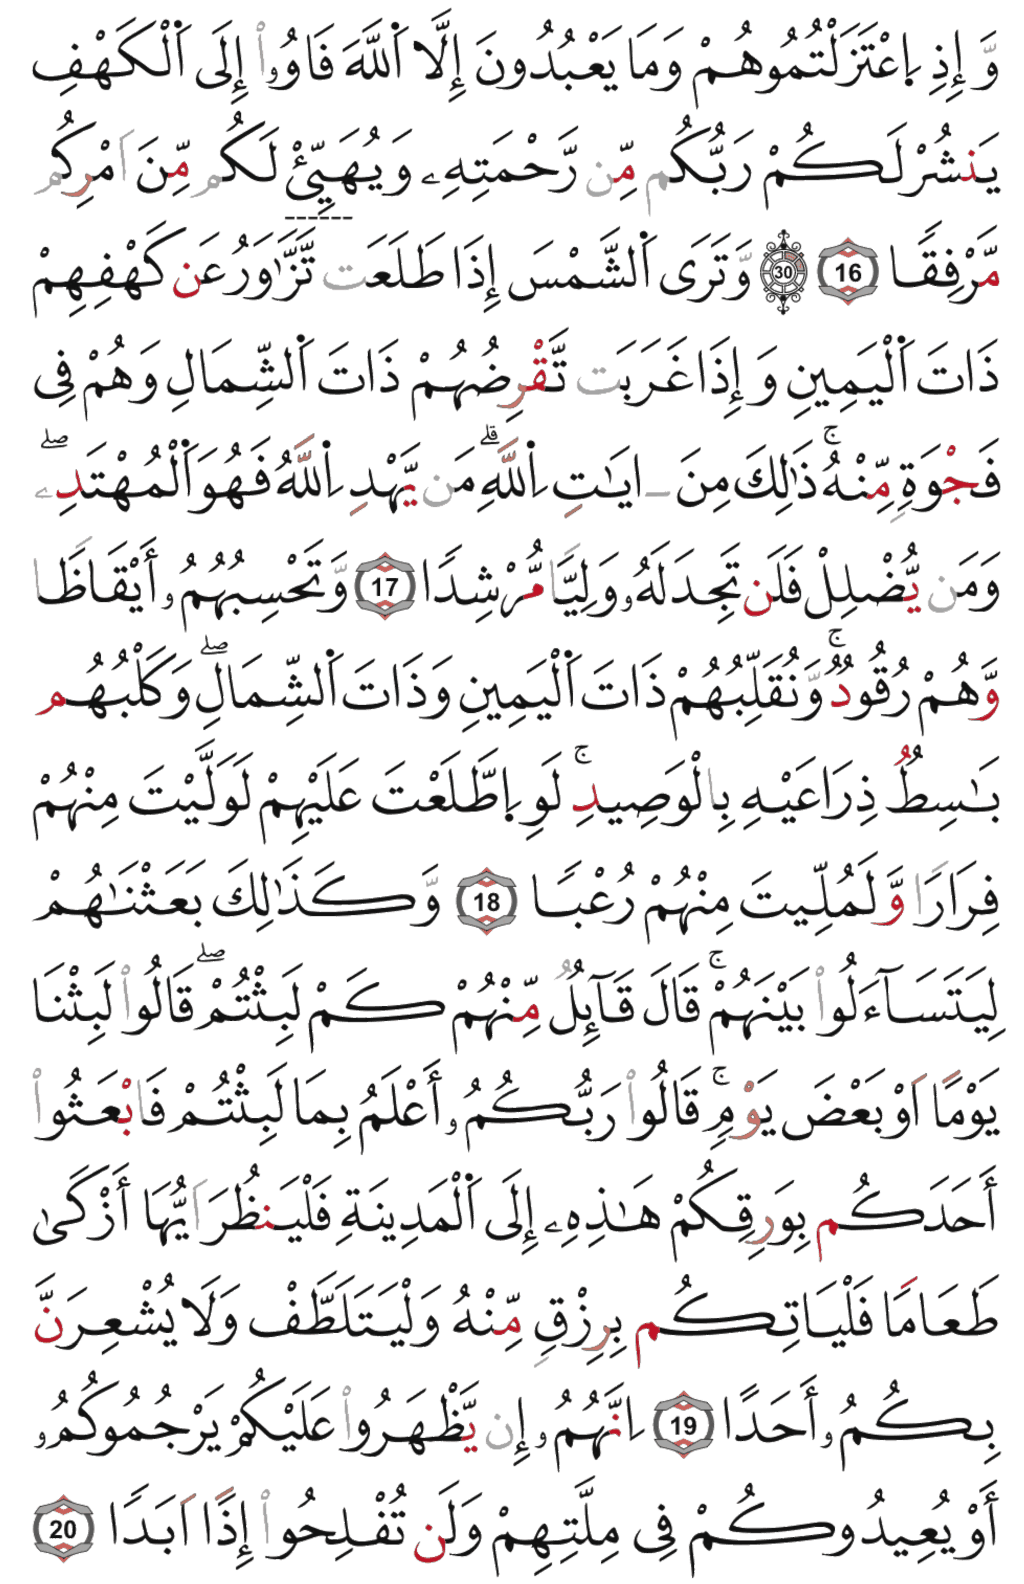 وَّإِذِ اِ۪عْتَزَلْتُمُوهُمْ وَمَا يَعْبُدُونَ إِلَّا اَ۬للَّهَ فَاوُۥٓاْ إِلَى اَ۬لْكَهْفِ
يَنشُرْ لَكُمْ رَبُّكُم مِّن رَّحْمَتِهِۦ وَيُهَيِّئْ لَكُم مِّنَ اَمْرِكُم
مَّرْفِقًا 16 30 وَّتَرَى اَ۬لشَّمْسَ إِذَا طَلَعَت تَّزَّٰوَرُ عَن كَهْفِهِمْ
ذَاتَ اَ۬لْيَمِينِ وَإِذَا غَرَبَت تَّقْرِضُهُمْ ذَاتَ اَ۬لشِّمَالِ وَهُمْ فِى
فَجْوَةٍ مِّنْهُ ۚ ذَٰلِكَ مِنَ ـ ايَٰتِ اِ۬للَّهِ ۗ مَن يَّهْدِ اِ۬للَّهُ فَهُوَ اَ۬لْمُهْتَدِۦ ۖ
وَمَن يُّضْلِلْ فَلَن تَجِدَ لَهُۥ وَلِيًّا مُّرْشِدًا 17 وَّتَحْسِبُهُمُۥٓ أَيْقَاظًا
وَّهُمْ رُقُودٌ ۚ وَّنُقَلِّبُهُمْ ذَاتَ اَ۬لْيَمِينِ وَذَاتَ اَ۬لشِّمَالِ ۖ وَكَلْبُهُم
بَٰسِطٌ ذِرَاعَيْهِ بِالْوَصِيدِ ۚ لَوِ اِ۪طَّلَعْتَ عَلَيْهِمْ لَوَلَّيْتَ مِنْهُمْ
فِرَارًا وَّلَمُلِّيتَ مِنْهُمْ رُعْبًا 18 وَّكَذَٰلِكَ بَعَثْنَٰهُمْ
لِيَتَسَآءَلُواْ بَيْنَهُمْ ۚ قَالَ قَآئِلٌ مِّنْهُمْ كَمْ لَبِثْتُمْ ۖ قَالُواْ لَبِثْنَا
يَوْمًا اَوْ بَعْضَ يَوْمٍ ۚ قَالُواْ رَبُّكُمُۥٓ أَعْلَمُ بِمَا لَبِثْتُمْ فَابْعَثُواْ
أَحَدَكُم بِوَرِقِكُمْ هَٰذِهِۦ إِلَى اَ۬لْمَدِينَةِ فَلْيَنظُرَ اَيُّهَا أَزْكَىٰ
طَعَامًا فَلْيَاتِكُم بِرِزْقٍ مِّنْهُ وَلْيَتَلَطَّفْ وَلَا يُشْعِرَنَّ
بِكُمُۥٓ أَحَدًا 19 اِنَّهُمُۥٓ إِن يَّظْهَرُواْ عَلَيْكُمْ يَرْجُمُوكُمُۥٓ
أَوْ يُعِيدُوكُمْ فِى مِلَّتِهِمْ وَلَن تُفْلِحُواْ إِذًا اَبَدًا 20